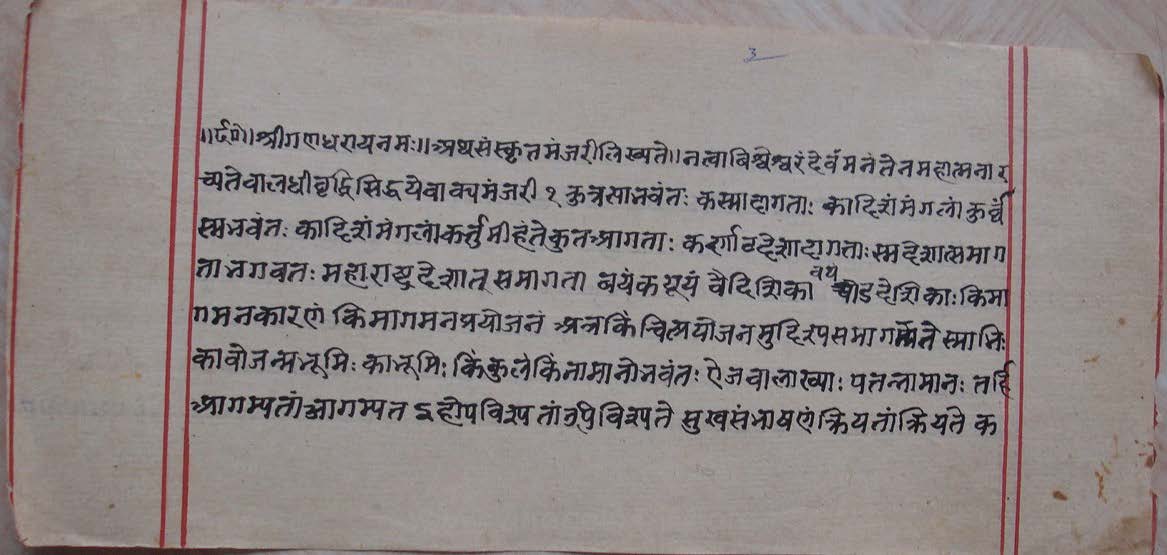 3
॥र्द०॥श्रीगणधरायनमः॥अथसंस्कृतमंजरीलिख्यते॥नत्वाविश्वेश्वरंदेवंमनंतेनमहात्मनार
च्यतेवालधीवृद्धिसिद्धयेवाक्यमंजरी १ कुत्रसाभवंतः कस्मादागताः कादिशंमंगलां कुर्व
स्मभवंतः कादिशंमंगलांकर्तुमीहंतेकुतआगताः कर्णाटदेशादागताःस्मदेशात्समाग
ताभगवतः महाराष्ट्रदेशात् समागता वयंकयूयं वैदिशिका वयं चोडदेशिकाः किमा
गमनकारणं किमागमनप्रयोजनं अत्रकिंचित्प्रयोजनमुदिश्पसमागम्पते स्माभिः
कावोजन्मभूमिः काभूमिः किंकुलंकिंनामानोभवंतः ऐजवालाख्याः पतन्नामानः तर्हि
आगम्पतांआगम्पत ऽहोपविश्पतांउपविश्पते सुखसंभाषणंक्रियतांक्रियते क